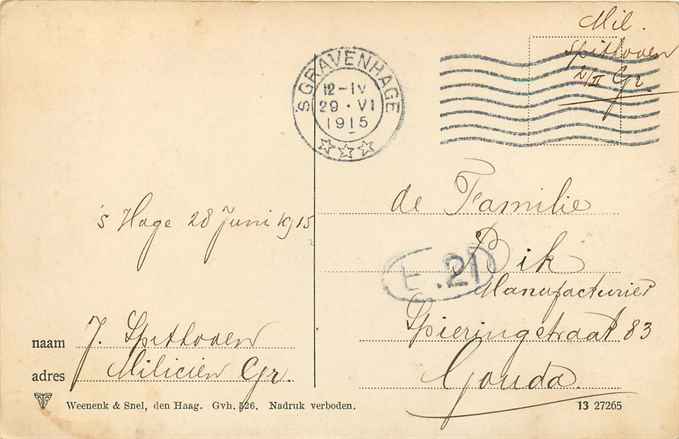 Mil.
Spithoven
2/II Gr.
'S GRAVENHAGE
12-IV
29 · VI
1915
's Hage 28 Juni 1915
de Familie
Bik
E.21
Manufacturier
Spieringstraat 83
Gouda.
naam J. Spithoven
adres Milicien Gr.
Weenenk & Snel, den Haag. Gvh. 526. Nadruk verboden.
13 27265